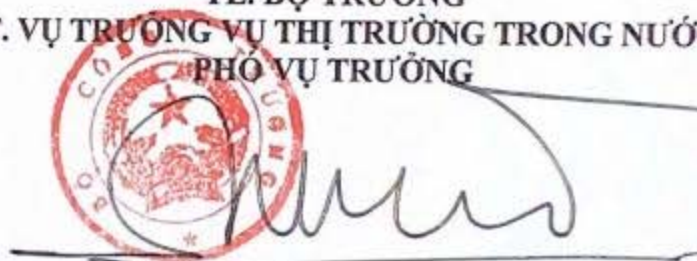 TL. BỘ TRƯỞNG
. VỤ TRƯỞNG VỤ THỊ TRƯỜNG TRONG NƯỚ
PHÓ VỤ TRƯỞNG
BỘ CÔNG THƯƠNG